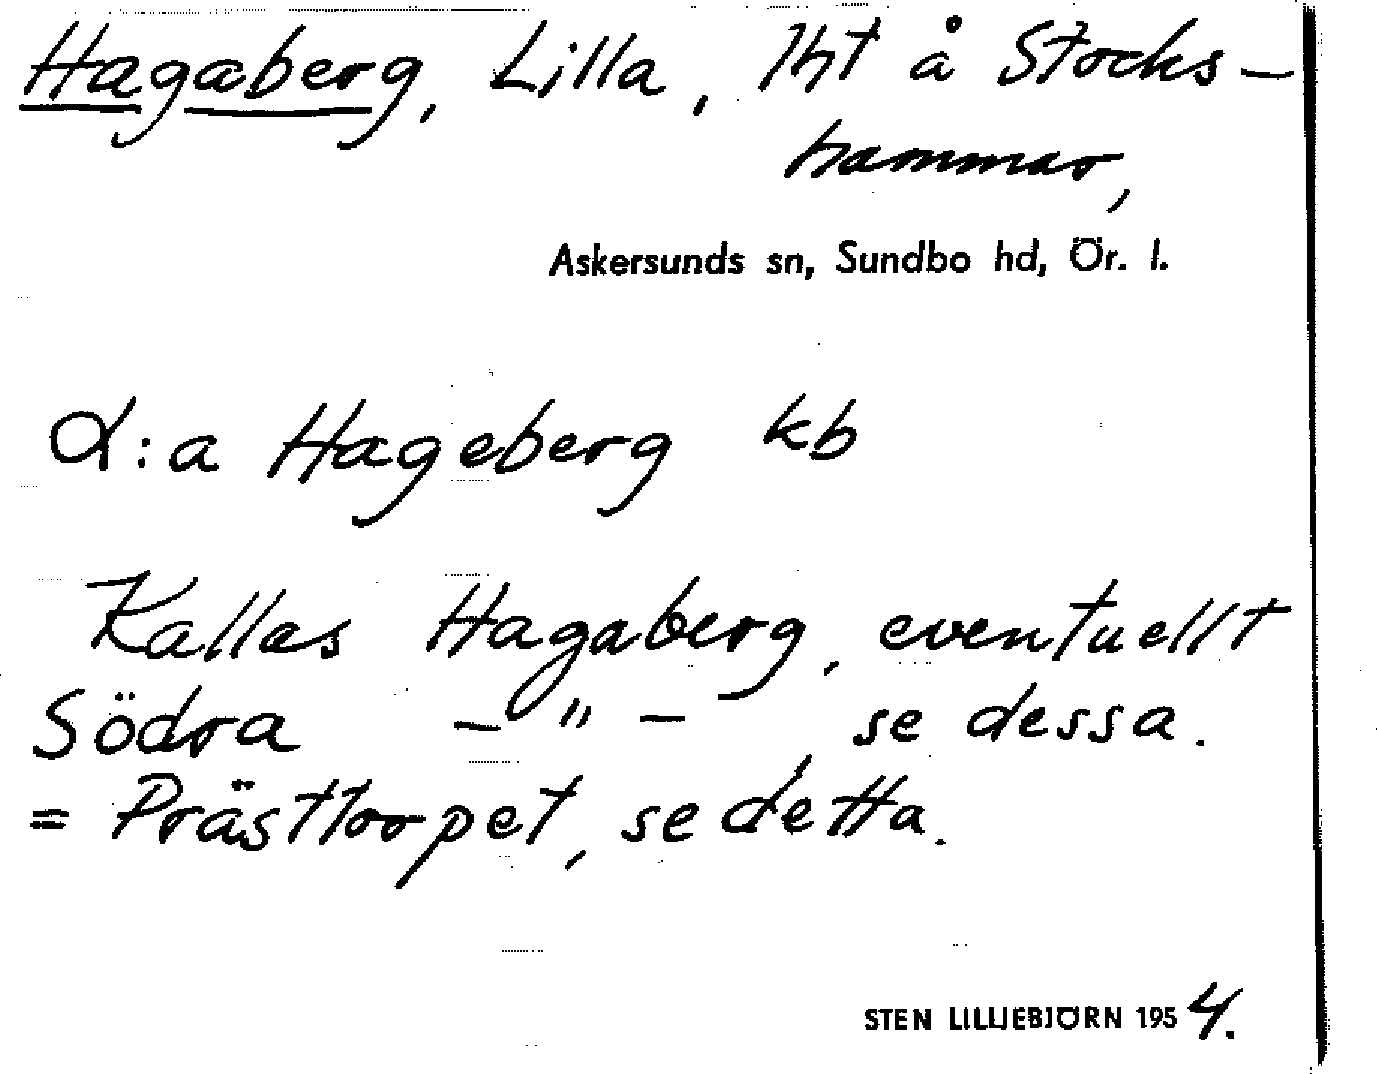 Hagaberg, Lilla, lht å Stocks-
hammar,
Askersunds sn, Sundbo hd, Ör. l.
L:a Hageberg kb
Kallas Hagaberg, eventuellt
Södra - " - , se dessa.
= Prästtorpet, se detta.
STEN LILLIEBJÖRN 1954.